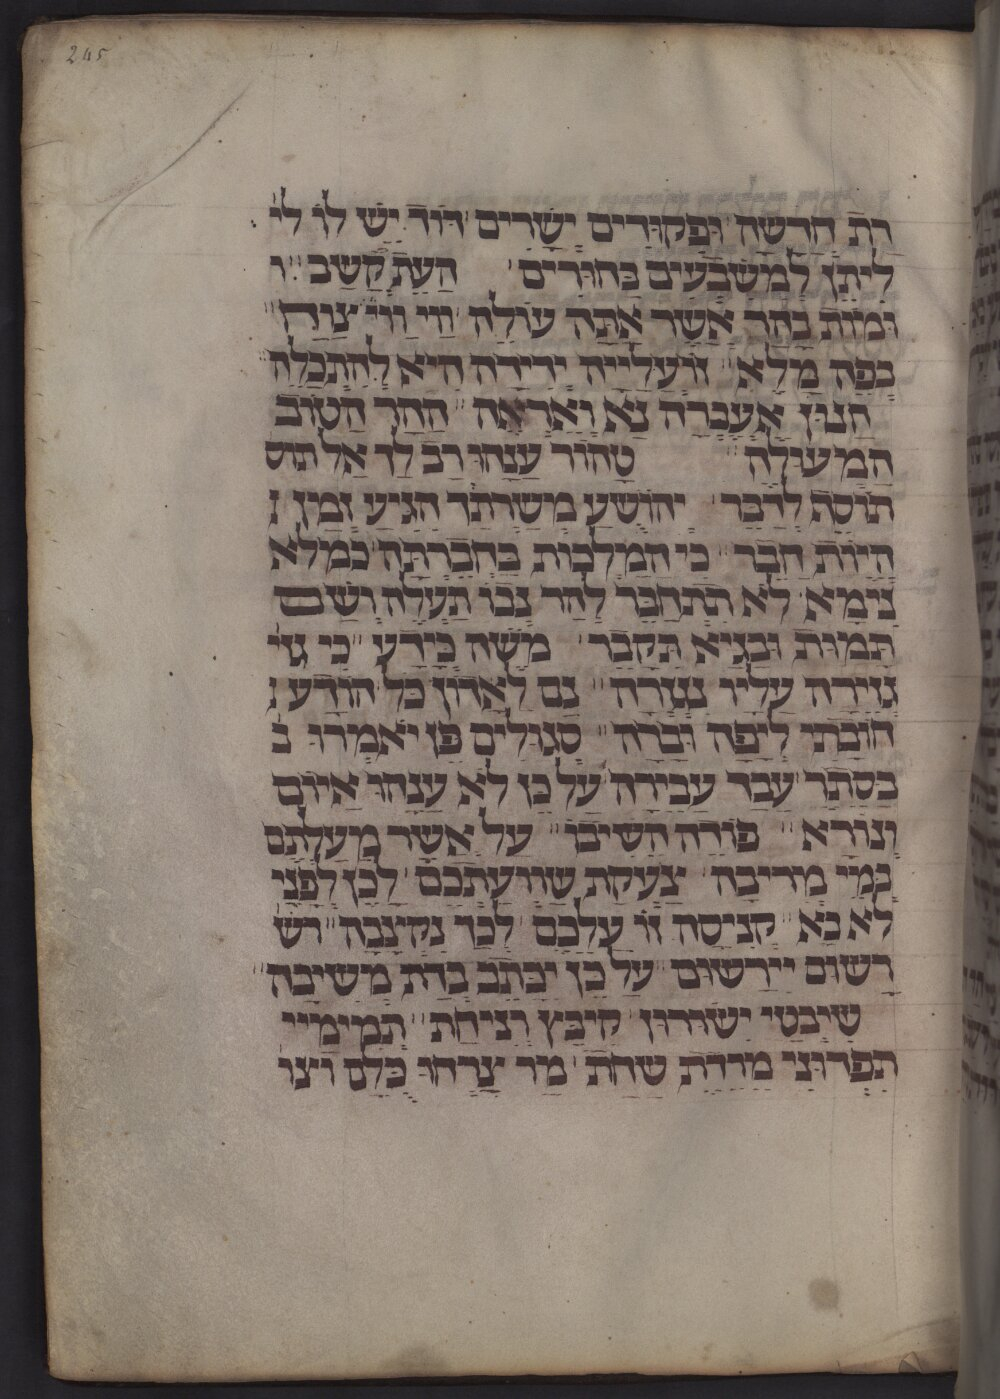 245
דת חדשה ופקודים ישרים דוד יש לו לי
ליתן למשבעים בחורים העת קשב ו
ומות בהר אשר אתה עולה ווי ווי צוח
בפה מלא זו עלייה ירידה היא להתכלה
חנון אעברה נא ואראה ההר הטוב
המעולה טהור ענהו רב לך אל תוס
תוסף לדבר יהושע משרתך הגיע זמן נ
היות חבר כי המלכות בחברתה כמלא
נימא לא תתחבר להר נבו תעלה ושם
תמות ובגיא תקבר משה כידע כי גזי
גזירה עליו נגזרה גם לארון כל הודע נ
חובתי ליפה וברה סגולים פן יאמרו ב
בסתר עבר עבירה על כן לא ענהו איום
ונורא פודה השיבו על אשר מעלתם
במי מריבה צעקת שוועתכם לכן לפני
לא בא קניסה זו עלכם לבד נקיצבה וש
רשום יירשום על כן יכתב בדת משיבה
שיבטי ישורון קיבץ רציחת תמימיי
תפרוצי מרדת שחת מר צרחו כלם וצו